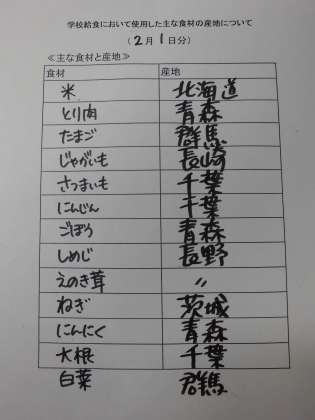 学校給食において使用した主な食材の産地について
（2月1日分）
≪主な食材と産地≫
食材 産地
米 北海道
とり肉 青森
たまご 群馬
じゃがいも 長崎
さつまいも 千葉
にんじん 千葉
ごぼう 青森
しめじ 長野
えのき茸 〃
ねぎ 茨城
にんにく 青森
大根 千葉
白菜 群馬